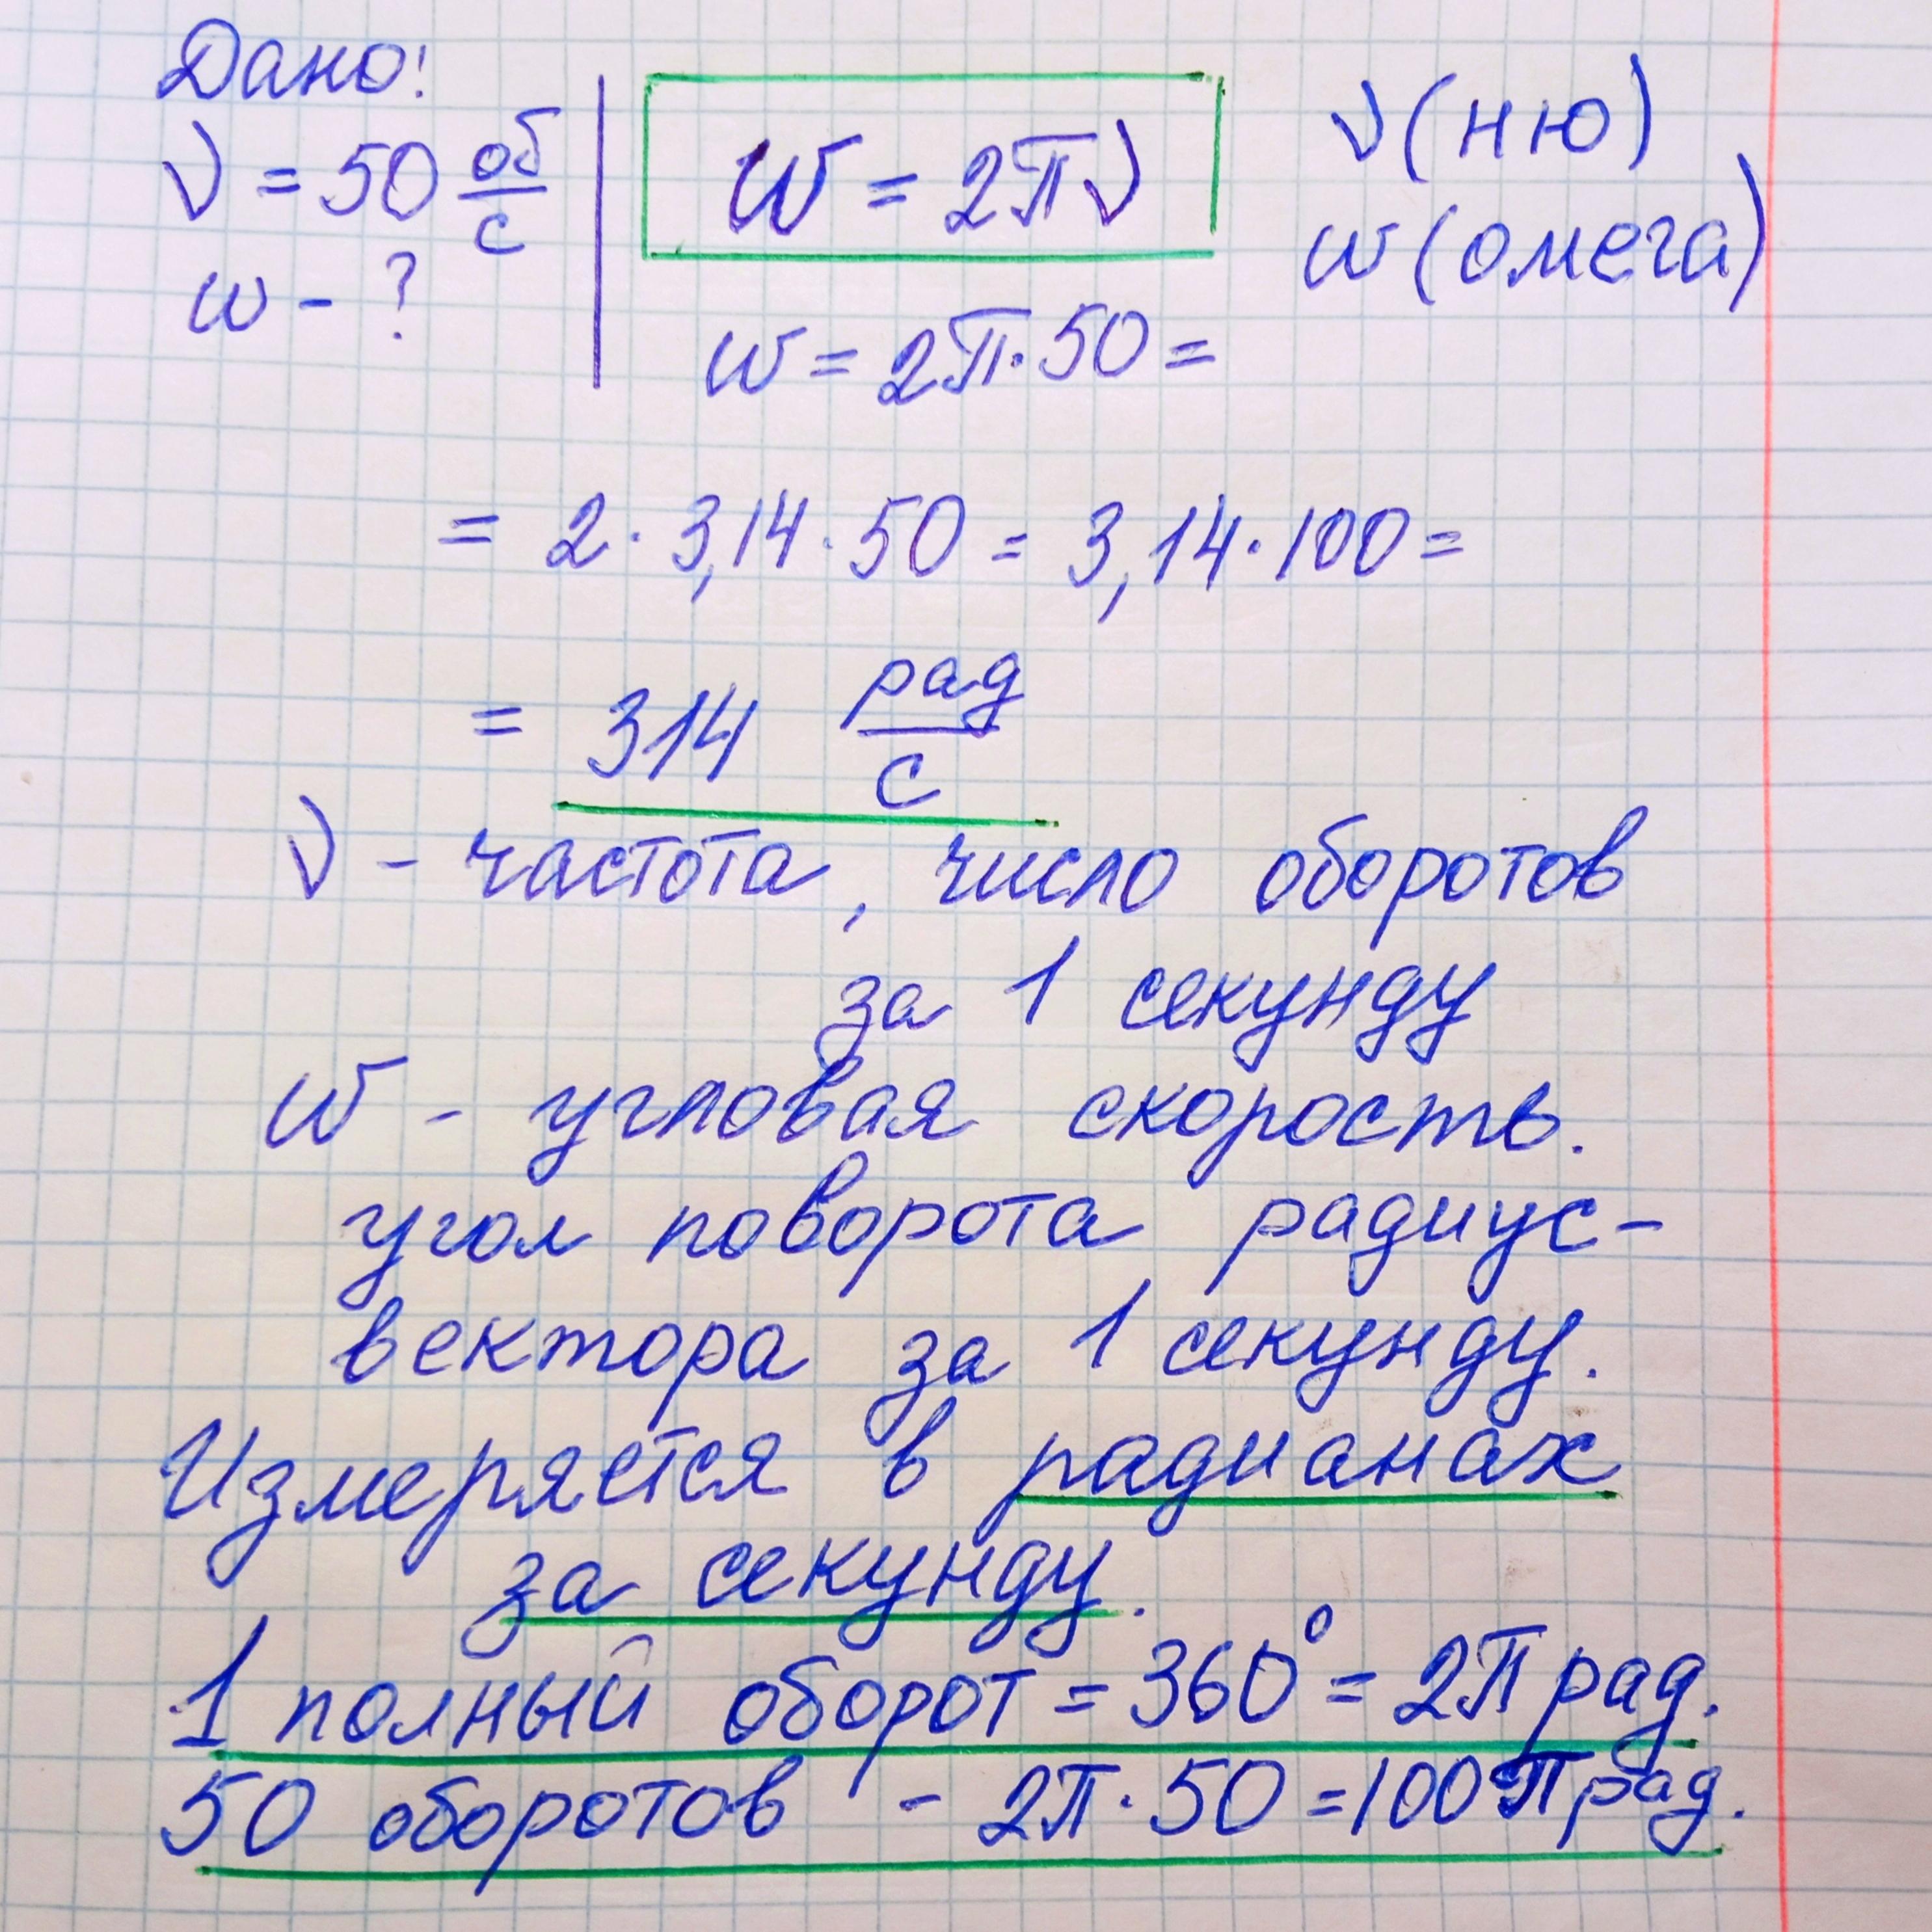 Дано:
ν = 50 об/с
ω - ?
ω = 2πν
ν (ню)
ω (омега)
ω = 2π·50 =
= 2·3,14·50 = 3,14·100 =
= 314 рад/с
ν - частота, число оборотов
за 1 секунду
ω - угловая скорость.
угол поворота радиус-
вектора за 1 секунду.
Измеряется в радианах
за секунду.
1 полный оборот = 360° = 2π рад.
50 оборотов - 2π·50 = 100π рад.